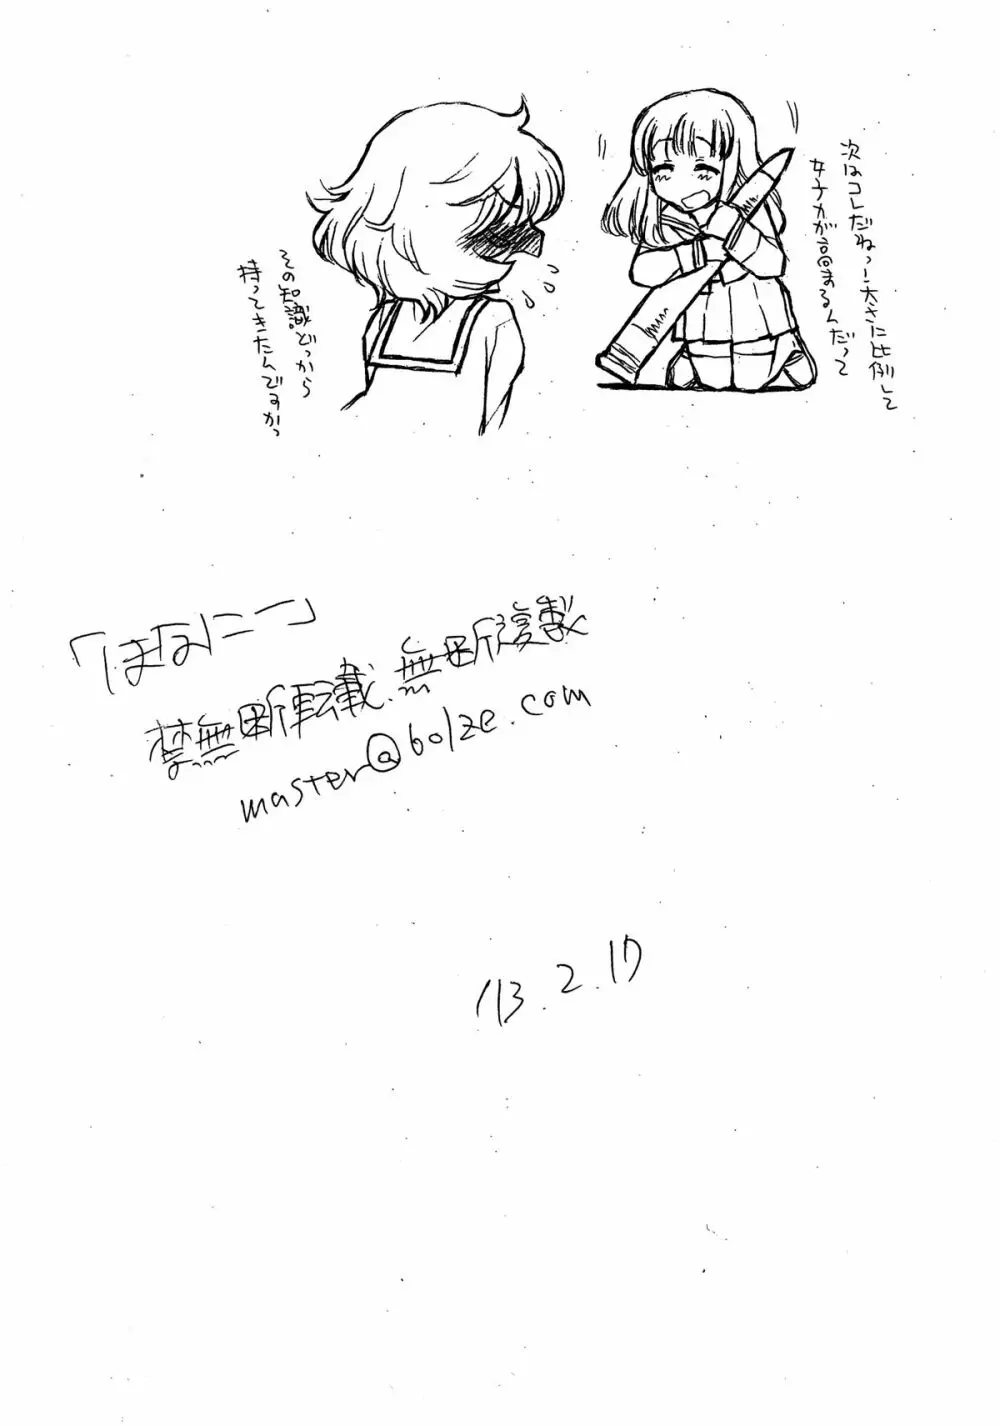 次はコレだねっ！大きさに比例して
女子力が高まるんだって
その知識どっから
持ってきたんですかっ
「はなにー」
禁無断転載、無断複製
master@bolze.com
'13.2.17